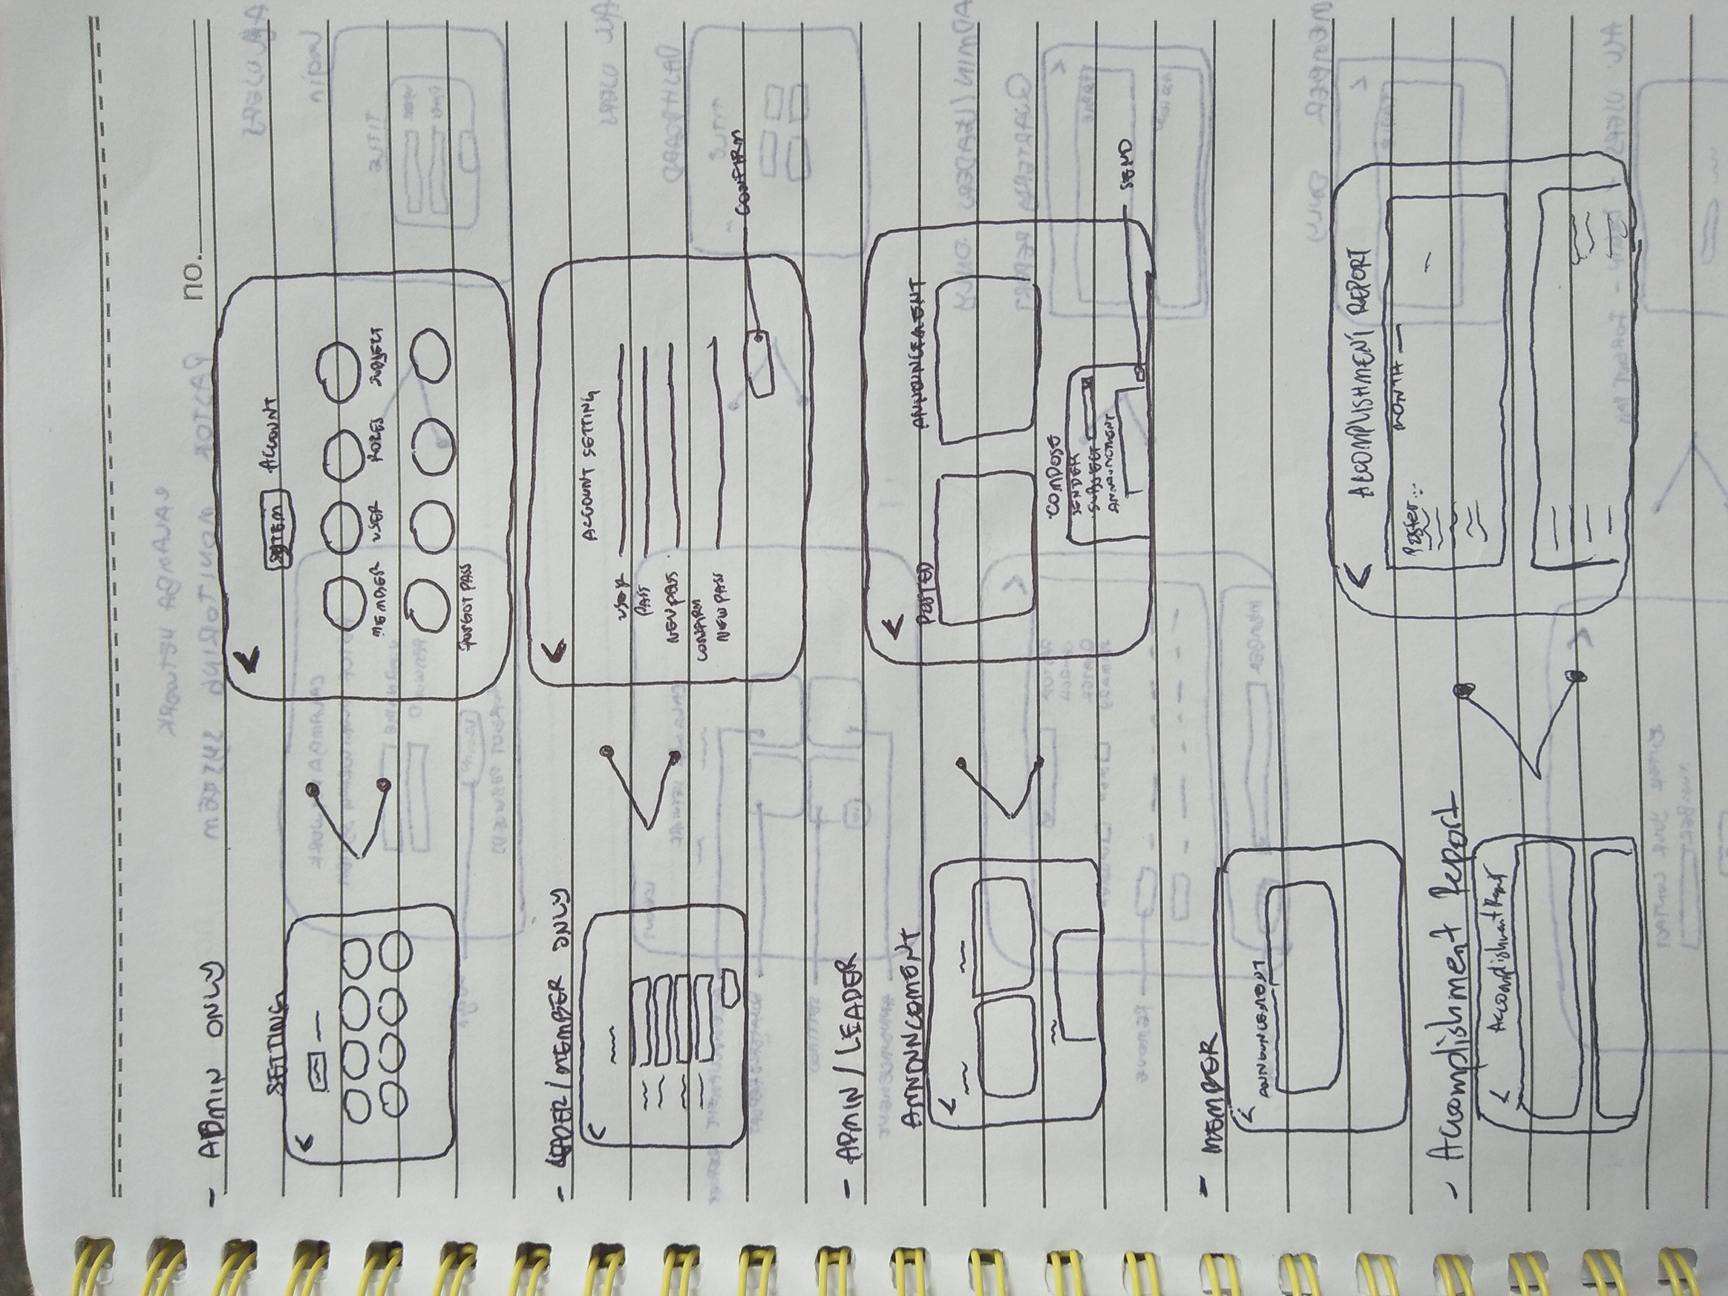 no.
- ADMIN ONLY
SETTING
<
<
SYTEM ACCOUNT
MEMBER USER ROLES SUBJECT
FORGOT PASS
- LEADER/MEMBER ONLY
<
<
ACCOUNT SETTING
USER
PASS
NEW PASS
CONFIRM
NEW PASS
CONFIRM
- ADMIN/LEADER
ANNOUNCEMENT
<
<
POSTED ANNOUNCEMENT
COMPOSE
SENDER
SUBJECT
ANNOUNCMENT
SEND
- MEMBER
<
ANNOUNCEMENT
- Accomplishment Report
< Accomplishment Report
< ACCOMPLISHMENT REPORT
MONTH
Paster...